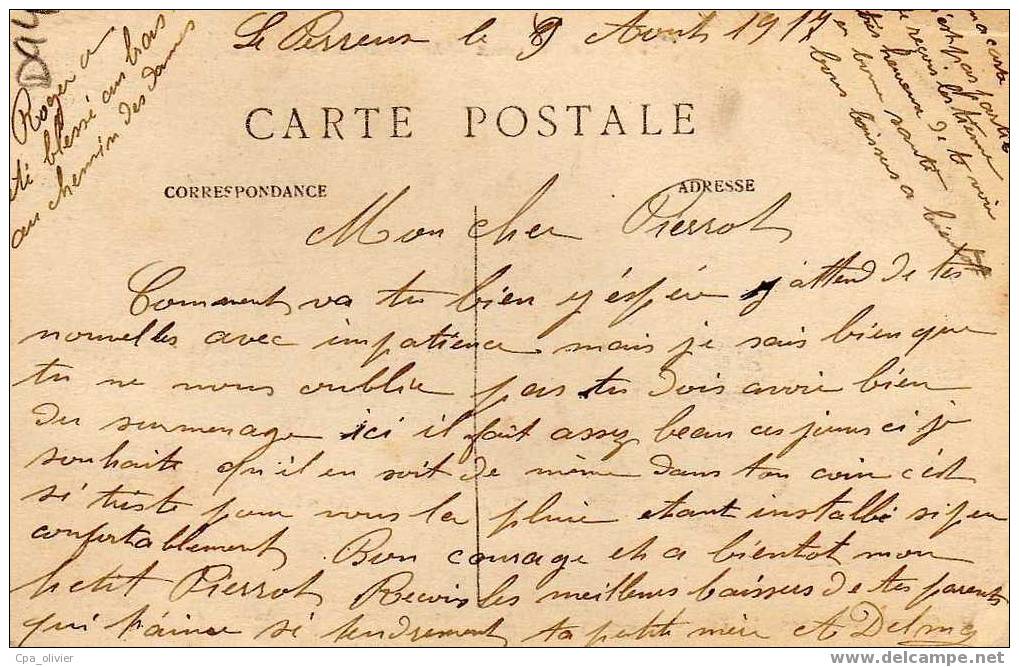 Le Perreux le 9 Août 1917
CARTE POSTALE
CORRESPONDANCE
ADRESSE
Mon cher Pierrot
Comment va tu bien y éspére j'attend de tes
nouvelles avec impatience mais je sais bien que
tu ne nous oublie pas tu dois avoir bien
du surmenage ici il fait assez beau ces jours ci je
souhaite qu'il en soit de même dans ton coin c'est
si triste pour vous la pluie etant installé si peu
confortablement Bon courage et a bientot mon
petit Pierrot Recois les meilleurs baisers de tes parents
qui t'aime si tendrement ta petite mère A Delmy
Roger a
été blessé au bras
au chemin des dames
ma carte
n'est pas partie
je reçois la tienne
très heureuse de te voir
en bonne santé
bons baisers a bientôt
D94
Cpa_olivier
www.delcampe.net